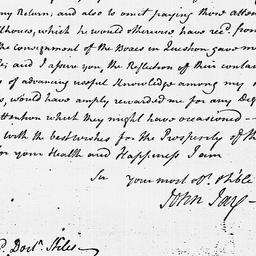 my Return, and also to omit paying those atten
lhouse, which he would otherwise have rec.d from
the consignment of the Boxes in Question gave me
; and I assure you, the Reflection of their
of advancing useful Knowledge among my
s, would have amply rewarded me for any Deg
attention which they might have occasioned —
With the best wishes for the Prosperity of th
for your Health and Happiness I am
Sir your most ob.t & h'ble
John Jay —
D. Doct.r Stiles —